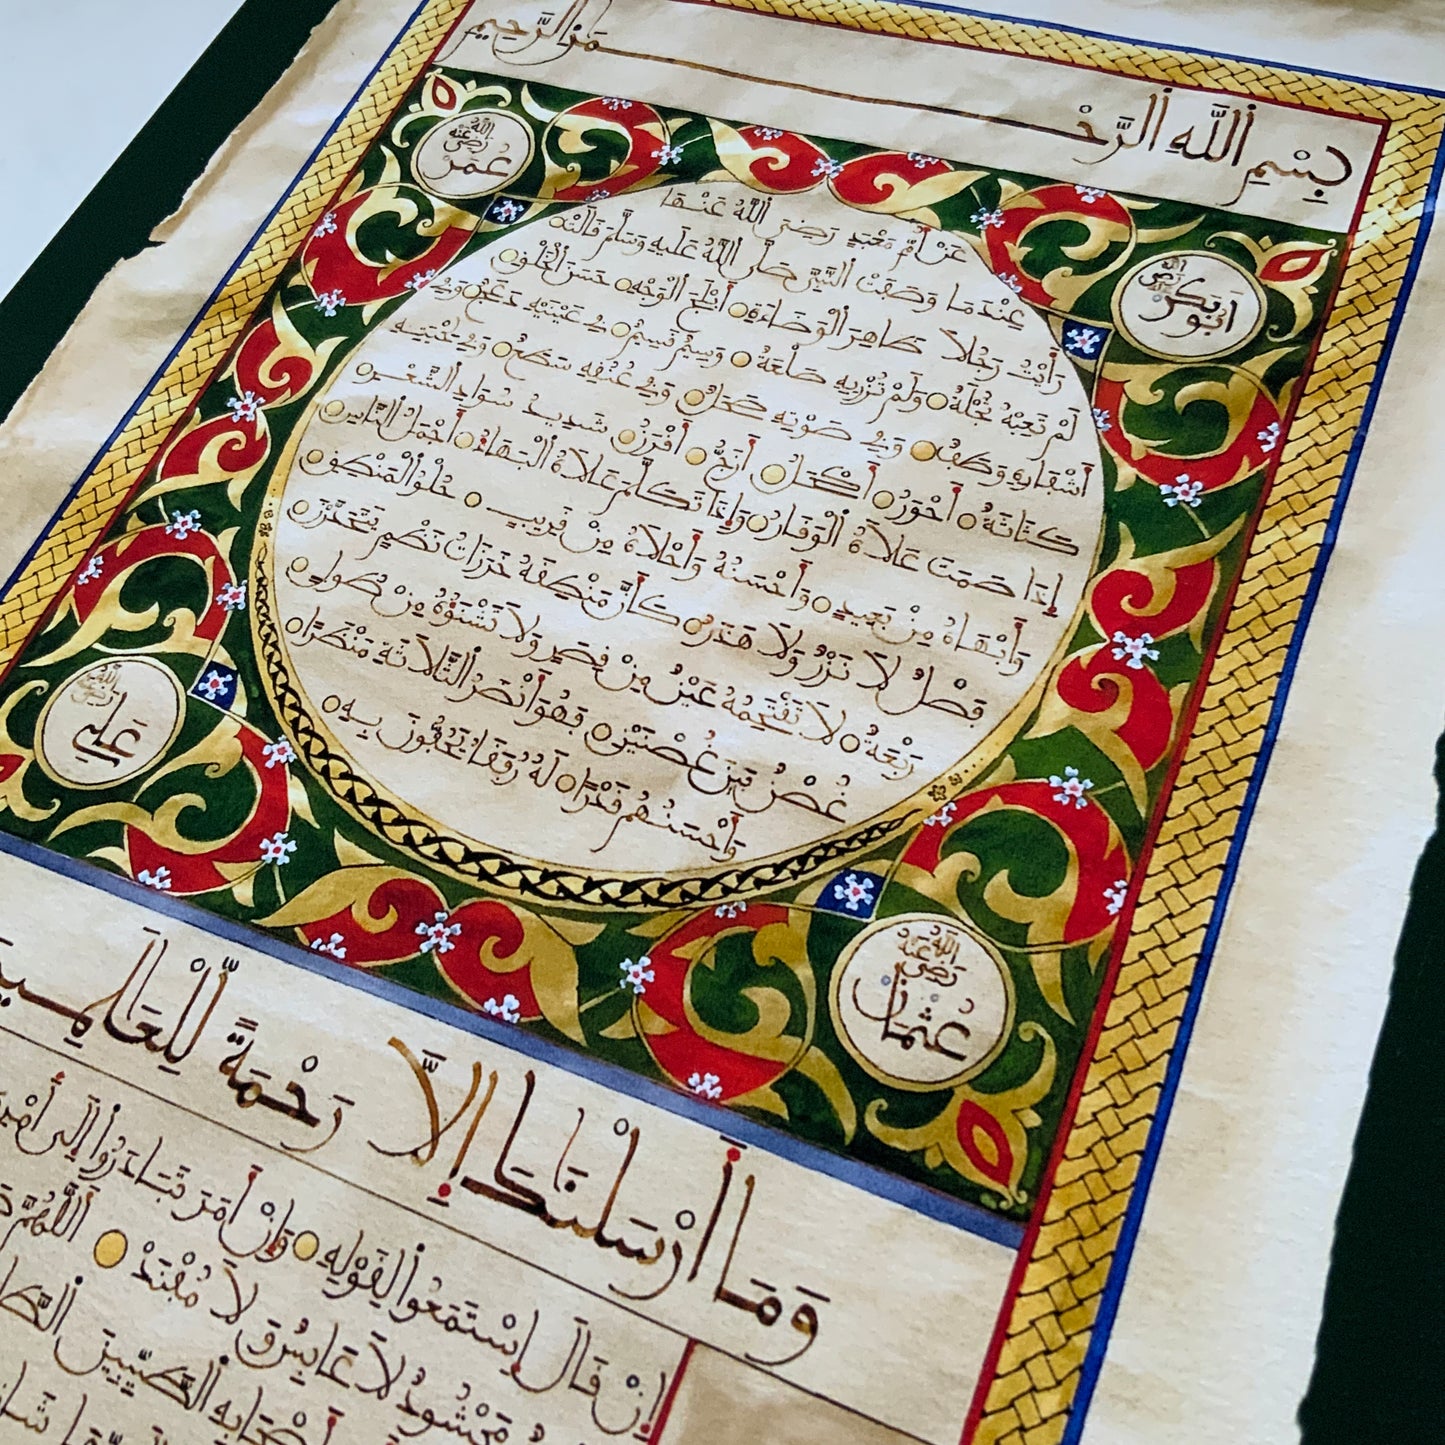 بِسْمِ اللَّهِ الرَّحْمَنِ الرَّحِيمِ
عُمَرُ رَضِيَ اللَّهُ عَنْهُ
أَبُو بَكْرٍ رَضِيَ اللَّهُ عَنْهُ
عَنْ أُمِّ مَعْبَدٍ رَضِيَ اللَّهُ عَنْهَا
عِنْدَمَا وَصَفَتْ النَّبِيَّ صَلَّى اللَّهُ عَلَيْهِ وَسَلَّمَ قَالَتْ
رَأَيْتُ رَجُلًا ظَاهِرَ الْوَضَاءَةِ أَبْلَجَ الْوَجْهِ حَسَنَ الْخُلُقِ
لَمْ تَعِبْهُ ثُجْلَةٌ وَلَمْ تُزْرِيهِ صَلْعَةٌ وَسِيمٌ قَسِيمٌ فِي عَيْنَيْهِ دَعَجٌ وَفِي
أَشْفَارِهِ وَطَفٌ وَفِي صَوْتِهِ صَحَلٌ وَفِي عُنُقِهِ سَطَعٌ وَفِي لِحْيَتِهِ
كَثَاثَةٌ أَحْوَرُ أَكْحَلُ أَزَجُّ أَقْرَنُ شَدِيدُ سَوَادِ الشَّعْرِ
إِذَا صَمَتَ عَلَاهُ الْوَقَارُ وَإِذَا تَكَلَّمَ عَلَاهُ الْبَهَاءُ أَجْمَلُ النَّاسِ
وَأَبْهَاهُ مِنْ بَعِيدٍ وَأَحْسَنُهُ وَأَحْلَاهُ مِنْ قَرِيبٍ حُلْوُ الْمَنْطِقِ
فَصْلٌ لَا نَزْرٌ وَلَا هَذَرٌ كَأَنَّ مَنْطِقَهُ خَرَزَاتُ نَظْمٍ يَتَحَدَّرْنَ
رَبْعَةٌ لَا تَقْتَحِمُهُ عَيْنٌ مِنْ قِصَرٍ وَلَا تَشْنَؤُهُ مِنْ طُولٍ
غُصْنٌ بَيْنَ غُصْنَيْنِ فَهُوَ أَنْضَرُ الثَّلَاثَةِ مَنْظَرًا
وَأَحْسَنُهُمْ قَدْرًا لَهُ رُفَقَاءُ يَحُفُّونَ بِهِ
عَلِيّ رَضِيَ اللَّهُ عَنْهُ
عُثْمَانُ رَضِيَ اللَّهُ عَنْهُ
وَمَا أَرْسَلْنَاكَ إِلَّا رَحْمَةً لِلْعَالَمِينَ
إِنْ قَالَ إِسْتَمَعُوا لِقَوْلِهِ وَإِنْ أَمَرَ تَبَادَرُوا إِلَى
مَحْشُودٌ لَا عَابِسٌ وَلَا مُفَنِّدٌ اللَّهُمَّ
أَصْحَابِهِ الطَّيِّبِينَ